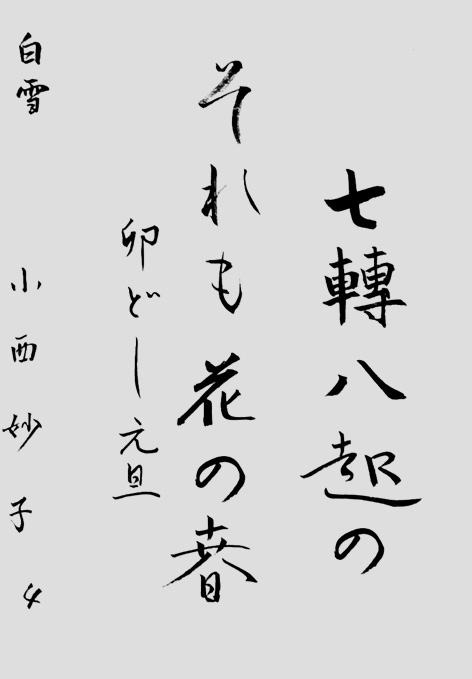 七轉八起の
それも花の春
卯どし元旦
白雪 小西妙子 4